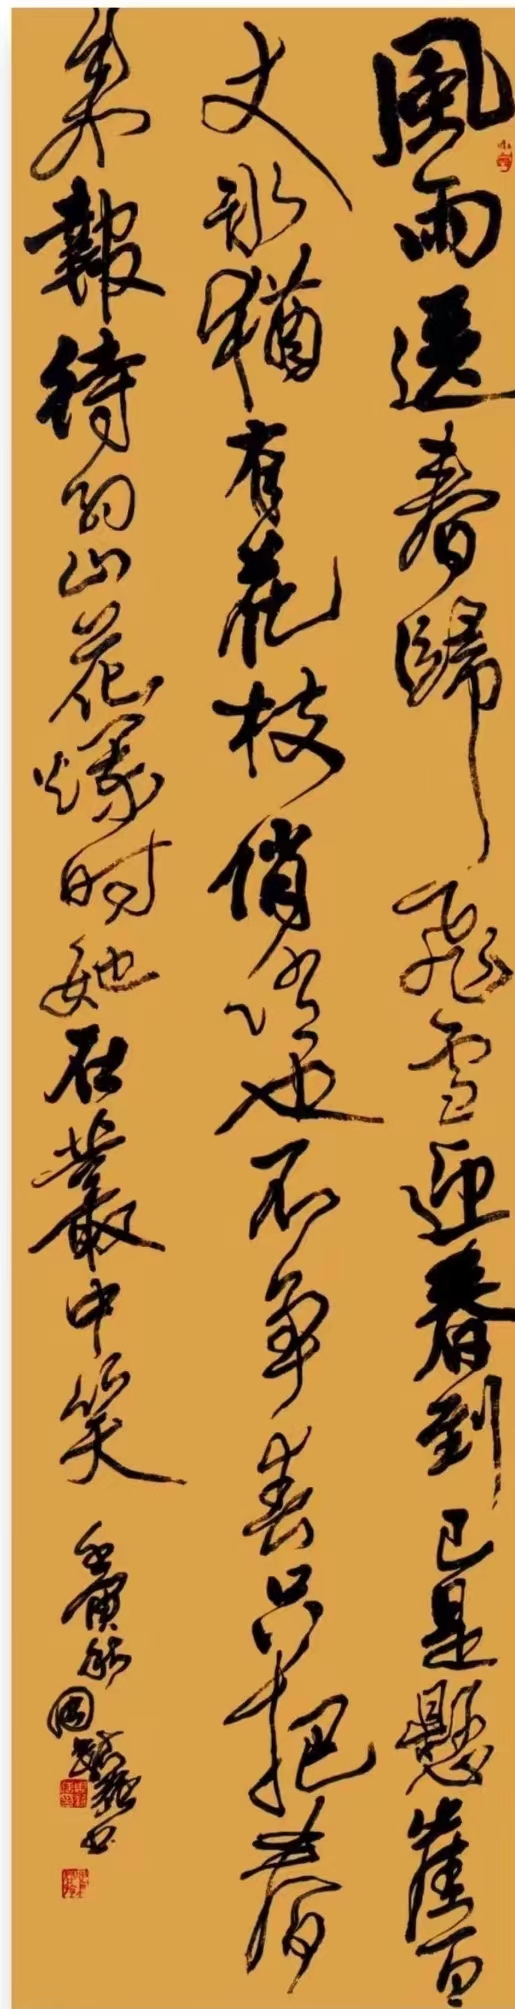 風雨送春歸飛雪迎春到已是懸崖百
丈冰猶有花枝俏俏也不争春只把春
来報待到山花爛时她在叢中笑
壬寅秋